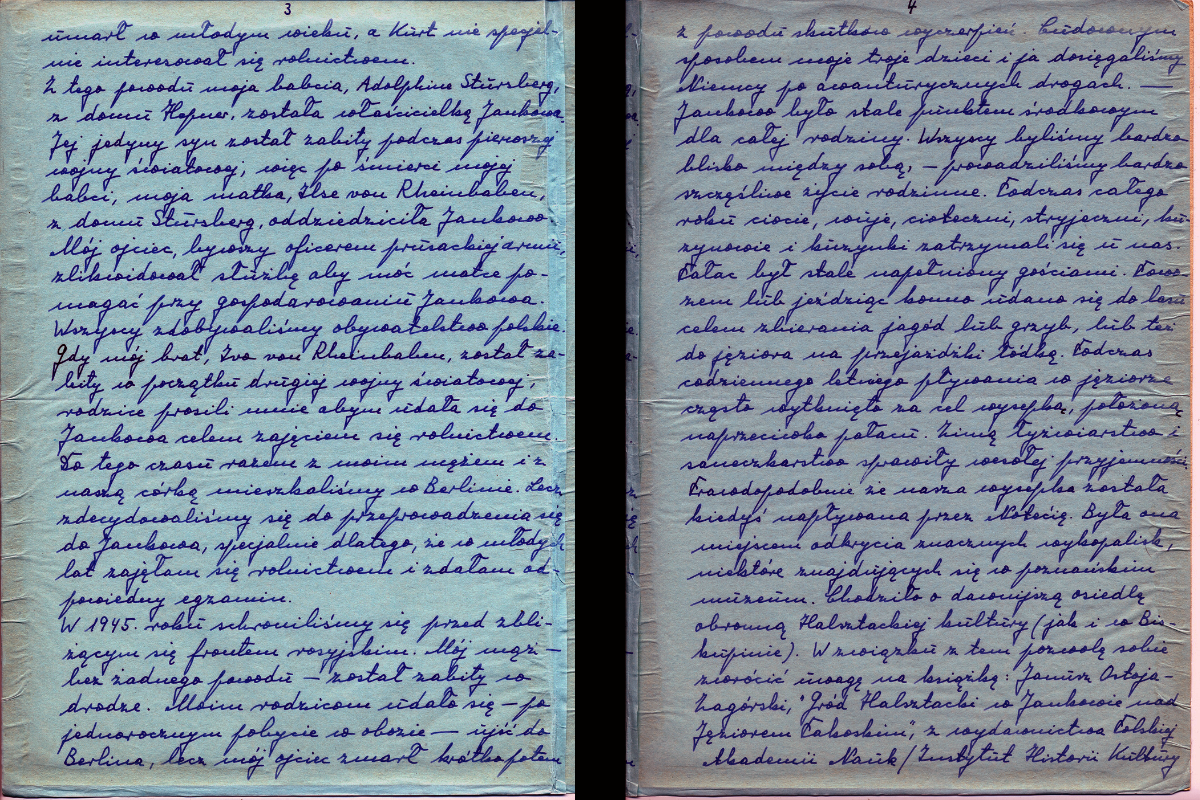 3
umarł w młodym wieku, a Kurt nie specjal-
nie interesował się rolnictwem.
Z tego powodu moja babcia, Adolphine Stursberg,
z domu Hepner, została właścicielką Jankowa.
Jej jedyny syn został zabity podczas pierwszej
wojny światowej, więc po śmierci mojej
babci, moja matka, Ilse von Rheinbaben,
z domu Stursberg, oddziedziciła Jankowo.
Mój ojciec, bywszy oficerem prusackiej armii,
zlikwidował służbę aby móc matce po-
magać przy gospodarowaniu Jankowa.
Wszyscy zdobywaliśmy obywatelstwo polskie.
Gdy mój brat, Ivo von Rheinbaben, został za-
bity w początku drugiej wojny światowej,
rodzice prosili mnie abym udała się do
Jankowa celem zajęciem się rolnictwem.
Do tego czasu razem z moim mężem i z
naszą córką mieszkaliśmy w Berlinie. Lecz
zdecydowaliśmy się do przeprowadzenia się
do Jankowa, specjalnie dlatego, że w młodych
lat zajęłam się rolnictwem i zdałam od-
powiedny egzamin.
W 1945. roku schroniliśmy się przed zbli-
żącym się frontem rosyjskim. Mój mąż —
bez żadnego powodu — został zabity w
drodze. Moim rodzicom udało się — po
jednorocznym pobycie w obozie — ujść do
Berlina, lecz mój ojciec zmarł krótko potem
4
z powodu skutków wyczerpień. Cudownym
sposobem moje troje dzieci i ja dosięgaliśmy
Niemcy po awanturycznych drogach. —
Jankowo było stale punktem środkowym
dla całej rodziny. Wszyscy byliśmy bardzo
blisko między sobą, — prowadziliśmy bardzo
szczęśliwe życie rodzinne. Podczas całego
roku ciocie, wuje, cioteczni, stryjeczni, ku-
zynowie i kuzynki zatrzymali się u nas.
Pałac był stale napołniony gościami. Powo-
zem lub jeżdżąc konno udano się do lasu
celem zbierania jagód lub grzyb, lub też
do jęziora na przejażdżki łódką. Podczas
codziennego letniego pływania w jęziorze
często wytknięto za cel wysepkę, położoną
naprzeciwko pałacu. Zimą łyżwiarstwo i
saneczkarstwo sprawiły wesołej przyjemności.
Prawdopodobnie że nasza wysepka została
kiedyś napływana przez Notecią. Była ona
miejscem odkrycia znacznych wykopalisk,
niektóre znajdujących się w poznańskim
muzeum. Chodziło o dawniejszą osiedlę
obronną Halsztackiej kultury (jak i w Bis-
kupinie). W związku z tem pozwolę sobie
zwrócić uwagę na książkę: Janusz Ostoja-
Zagórski, "Gród Halsztacki w Jankowie nad
Jęziorem Pakoskim", z wydawnictwa Polskiej
Akademii Nauk / Instytut Historii Kultury